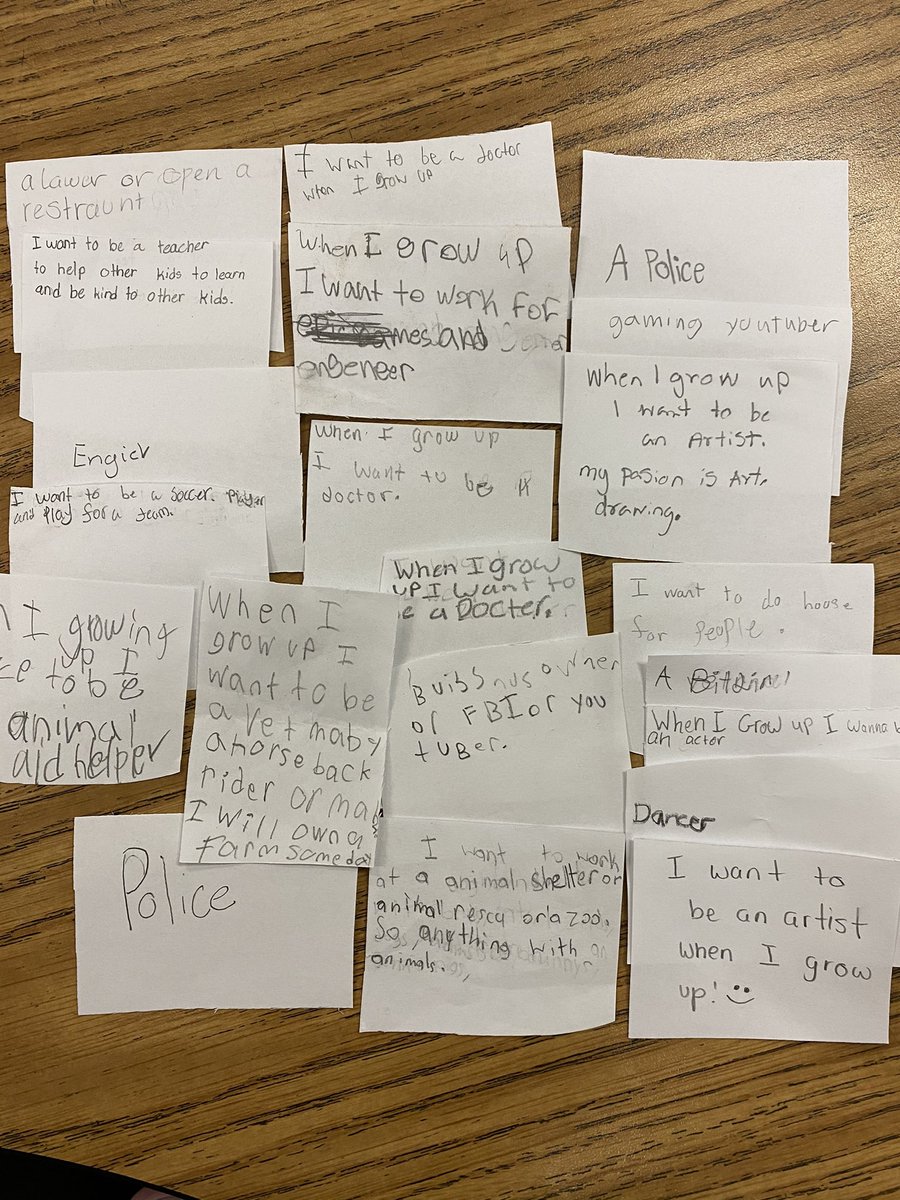 a lawer or open a
restraunt
I want to be a teacher
to help other kids to learn
and be kind to other kids.
Engier
I want to be a soccer. Player
and Play for a team.
I growing
up I
to be
animal
aid helper
I want to be a doctor
when I grow up
When I grow up
I want to work for
epic games and
enGeneer
When I grow up
I want to be a
doctor.
When I grow
up I want to
be a Docter.
When I
grow up I
want to be
a vet maby
a horse back
rider or ma
I will own a
farm someday
Buissnus owner
or FBI or you
tuber.
Police
I want to work
at a animal shelter or
animal rescu or a zoo.
So, anything with an
animals.
A Police
gaming youtuber
When I grow up
I want to be
an Artist.
my pasion is Art.
drawing.
I want to do house
for people.
A
When I Grow up I wanna
an actor
Dancer
I want to
be an artist
when I grow
up!